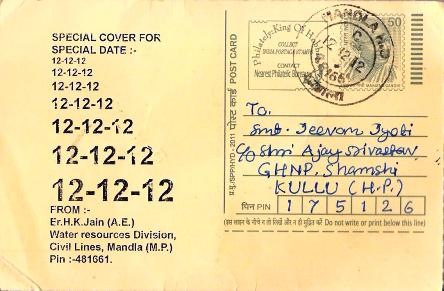 SPECIAL COVER FOR
SPECIAL DATE :-
12-12-12
12-12-12
12-12-12
12-12-12
12-12-12
12-12-12
12-12-12
FROM :-
Er.H.K.Jain (A.E.)
Water resources Division,
Civil Lines, Mandla (M.P.)
Pin :-481661.
Philately-King Of Hobbies
COLLECT
INDIA POSTAGE STAMPS
CONTACT
Nearest Philatelic Bureau
MANDLA H.O
12-12-12
50
पोस्ट कार्ड POST CARD
To,
Smt. Jeevan Jyoti
C/o Shri Ajay Srivastav
GHNP, Shamshi
KULLU (H.P.)
पिन PIN 175126
(इस लाइन के नीचे न तो लिखें और न ही मुद्रित करें Do not write or print below this line)